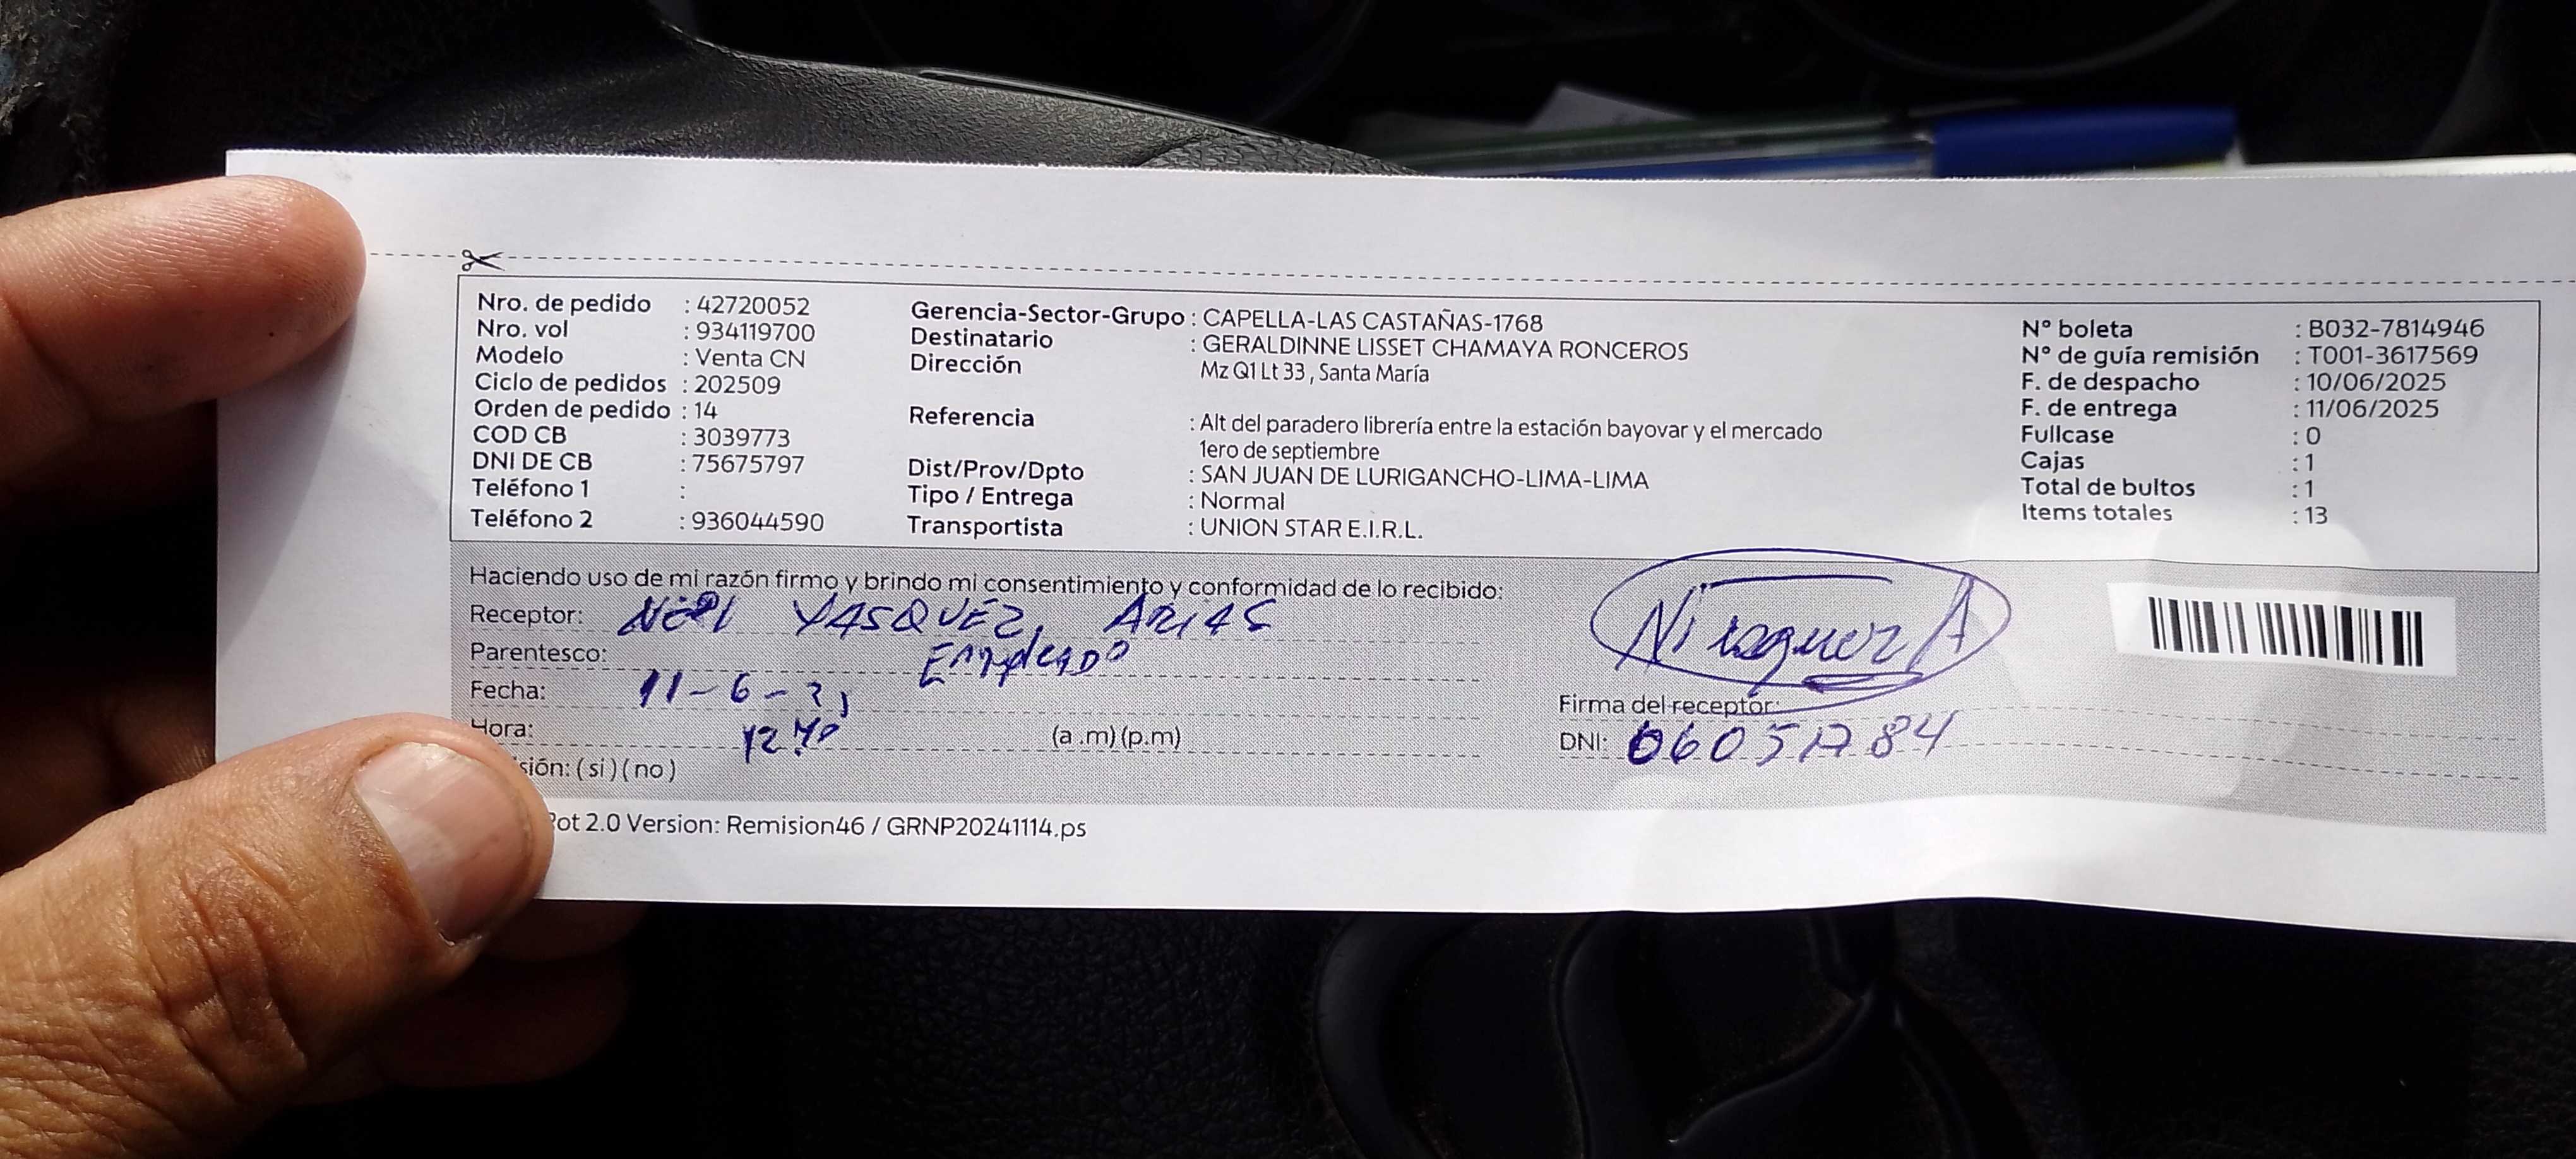 Nro. de pedido : 42720052
Nro. vol : 934119700
Modelo : Venta CN
Ciclo de pedidos : 202509
Orden de pedido : 14
COD CB : 3039773
DNI DE CB : 75675797
Teléfono 1 :
Teléfono 2 : 936044590
Gerencia-Sector-Grupo : CAPELLA-LAS CASTAÑAS-1768
Destinatario : GERALDINNE LISSET CHAMAYA RONCEROS
Dirección Mz Q1 Lt 33 , Santa María
Referencia : Alt del paradero librería entre la estación bayovar y el mercado
1ero de septiembre
Dist/Prov/Dpto : SAN JUAN DE LURIGANCHO-LIMA-LIMA
Tipo / Entrega : Normal
Transportista : UNION STAR E.I.R.L.
N° boleta : B032-7814946
N° de guía remisión : T001-3617569
F. de despacho : 10/06/2025
F. de entrega : 11/06/2025
Fullcase : 0
Cajas : 1
Total de bultos : 1
Items totales : 13
Haciendo uso de mi razón firmo y brindo mi consentimiento y conformidad de lo recibido:
Receptor: VASQUEZ ARIAS
Parentesco: Empleado
Fecha: 11-6-
Hora: (a .m) (p.m)
sión: ( si ) ( no )
Firma del receptor:
DNI:
ot 2.0 Version: Remision46 / GRNP20241114.ps